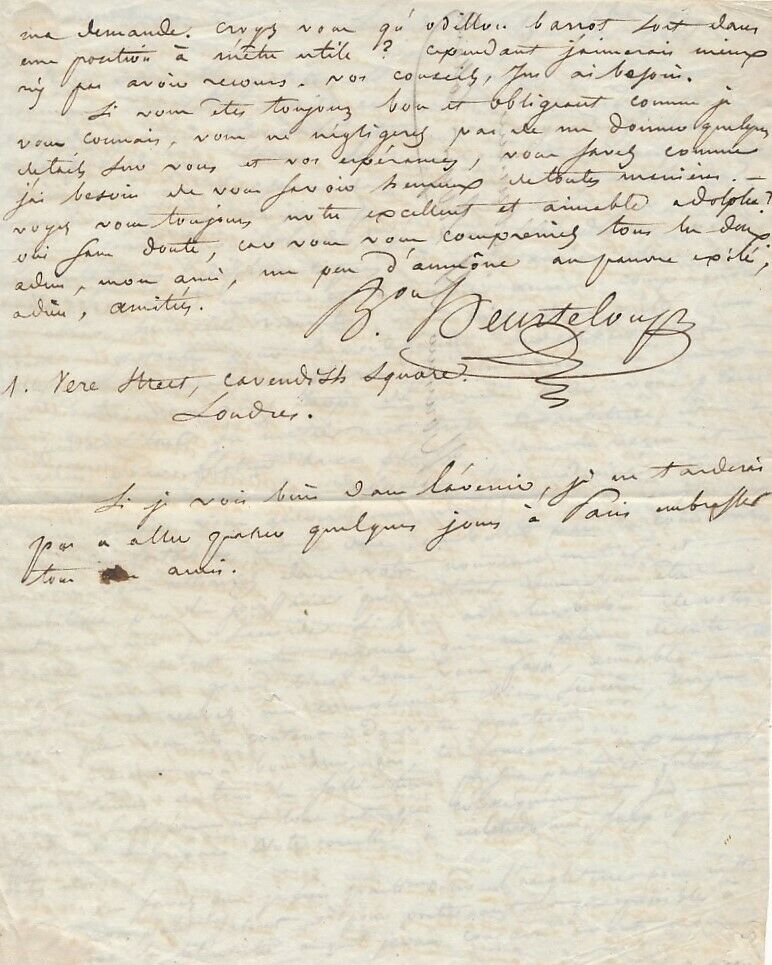 ma demande. croyez vous qu'odillon barrot soit dans
une position à m'être utile ? cependant j'aimerais mieux
n'y pas avoir recours. vos conseils, j'en ai besoin.
Si vous êtes toujours bon et obligeant comme je
vous connais, vous ne négligerez pas de me donner quelques
détails sur vous et vos espérances, vous savez comme
j'ai besoin de vous savoir heureux de toutes manières. —
voyez vous toujours notre excellent et aimable adolphe ?
oui sans doute, car vous vous comprenez tous les deux
adieu, mon ami, un peu d'aumône au pauvre exilé,
adieu, amitiés.
Bon Heurteloup
1. Vere Street, Cavendish Square.
Londres.
Si je vois bien dans l'avenir, je ne tarderai
pas à aller passer quelques jours à Paris embrasser
tous amis.